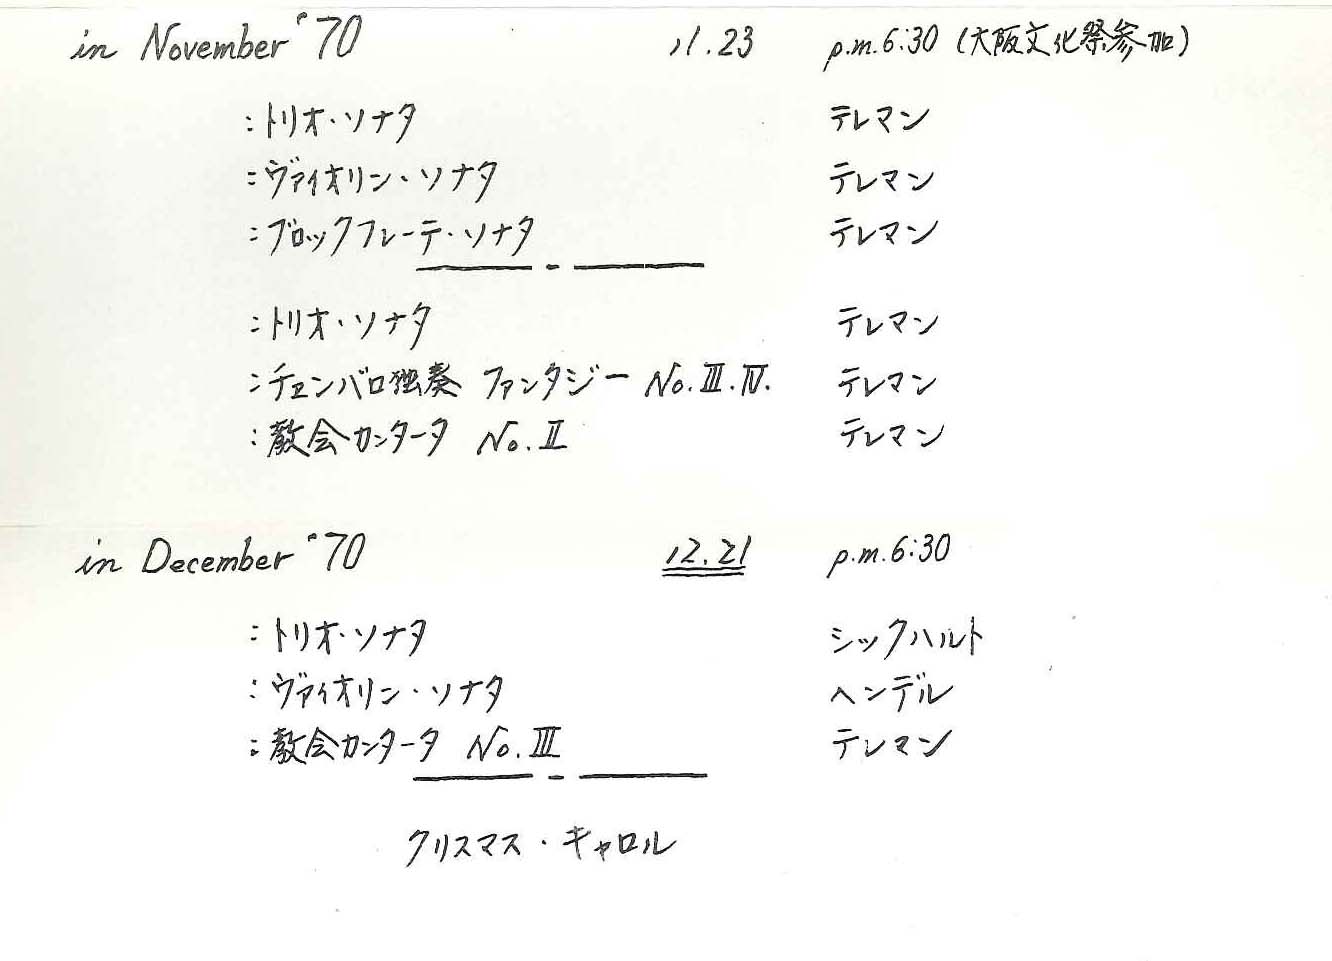 in November '70 11.23 p.m.6:30 (大阪文化祭参加)
:トリオ・ソナタ テレマン
:ヴァイオリン・ソナタ テレマン
:ブロックフレーテ・ソナタ テレマン
:トリオ・ソナタ テレマン
:チェンバロ独奏 ファンタジー No.Ⅲ.Ⅳ. テレマン
:教会カンタータ No.Ⅱ テレマン
in December '70 12.21 p.m.6:30
:トリオ・ソナタ シックハルト
:ヴァイオリン・ソナタ ヘンデル
:教会カンタータ No.Ⅲ テレマン
クリスマス・キャロル